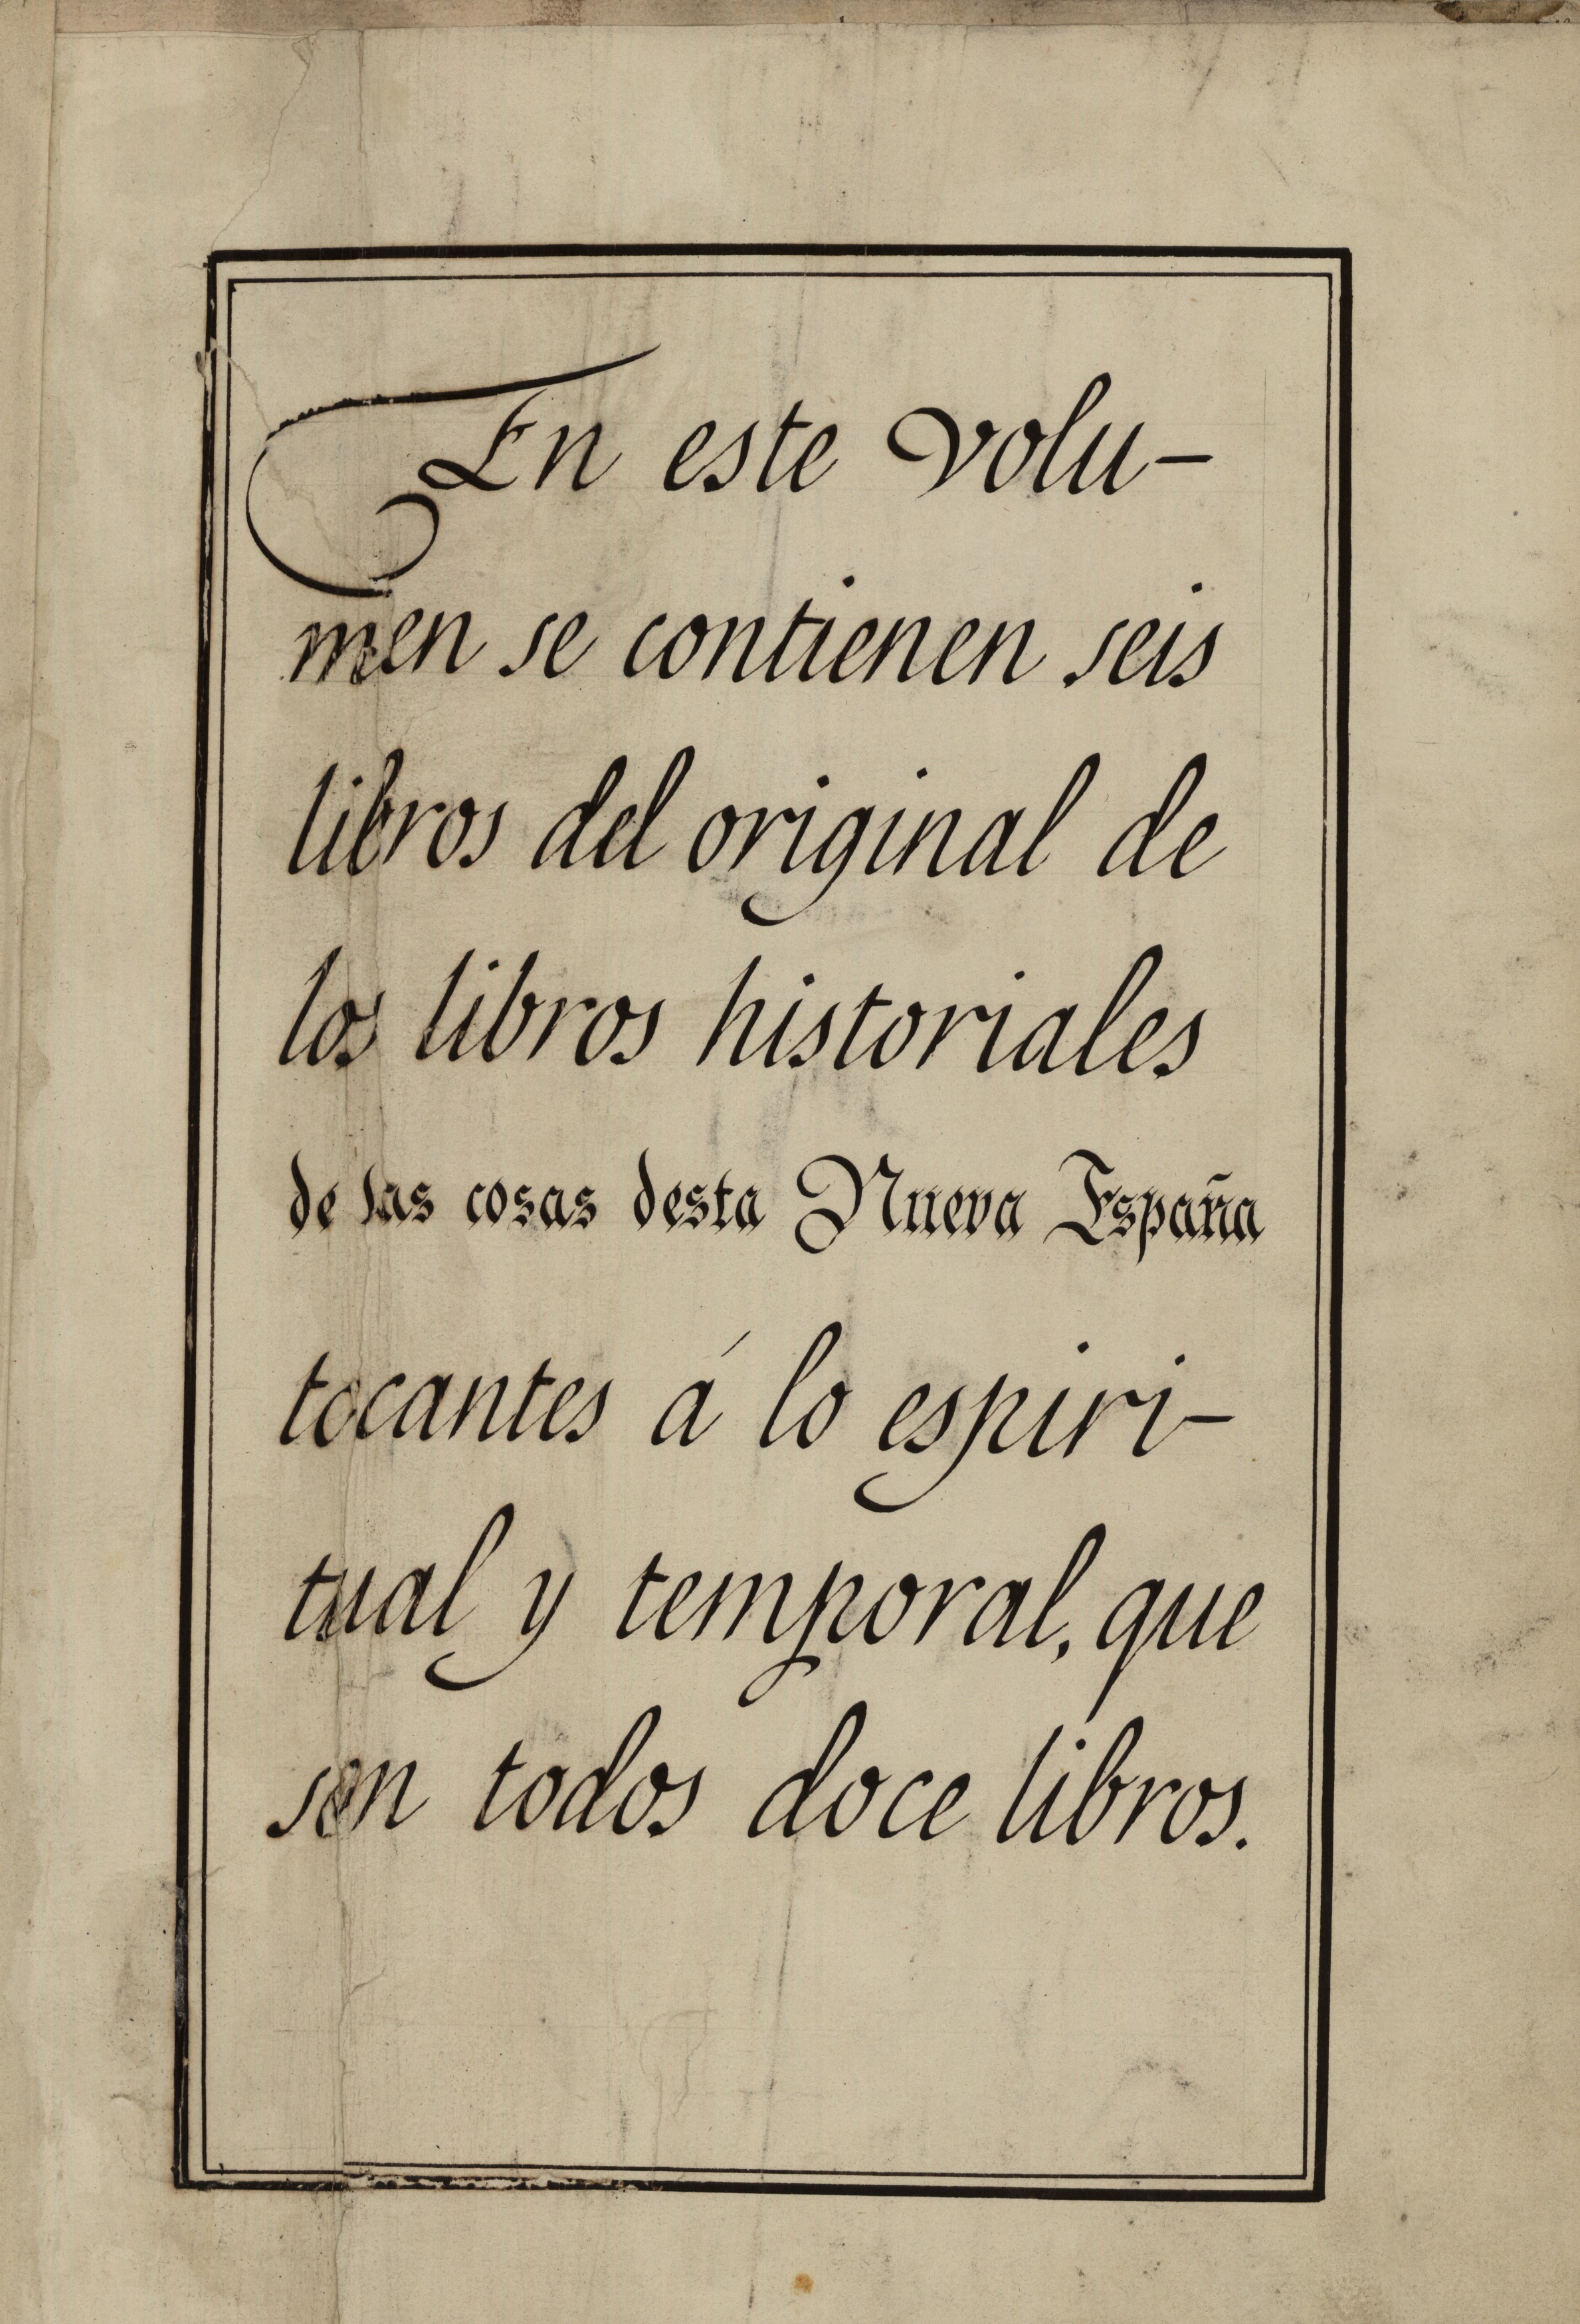 En este volu-
men se contienen seis
libros del original de
los libros historiales
de las cosas desta Nueva España
tocantes á lo espiri-
tual y temporal, que
son todos doce libros.